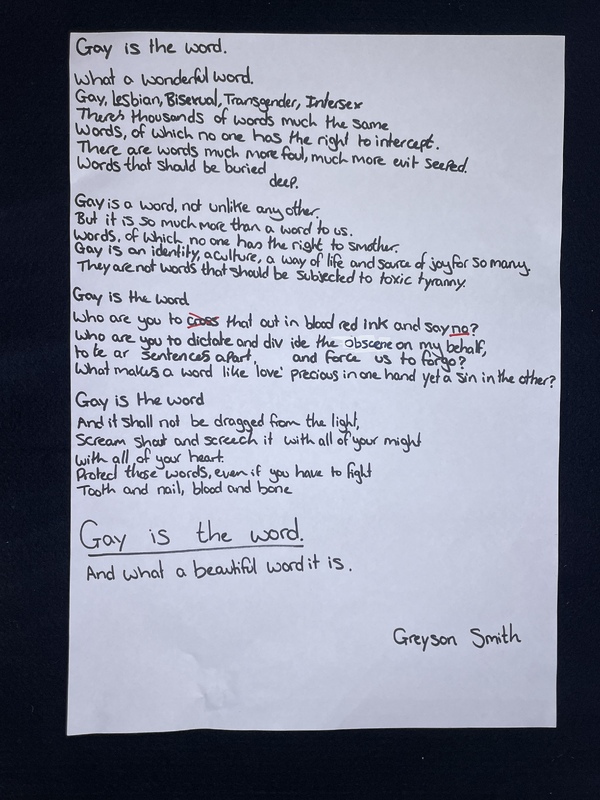 Gay is the word.
What a wonderful word.
Gay, Lesbian, Bisexual, Transgender, Intersex
There's thousands of words much the same
Words, of which no one has the right to intercept.
There are words much more foul, much more evil seeped.
Words that should be buried
deep.
Gay is a word, not unlike any other.
But it is so much more than a word to us.
Words, of which no one has the right to smother.
Gay is an identity, a culture, a way of life and source of joy for so many.
They are not words that should be subjected to toxic tyranny.
Gay is the word
Who are you to cross that out in blood red ink and say no?
Who are you to dictate and div ide the obscene on my behalf,
to te ar sentences apart, and force us to forgo?
What makes a word like 'love' precious in one hand yet a sin in the other?
Gay is the word
And it shall not be dragged from the light,
Scream shout and screech it with all of your might
With all of your heart.
Protect those words, even if you have to fight
Tooth and nail, blood and bone
Gay is the word.
And what a beautiful word it is.
Greyson Smith